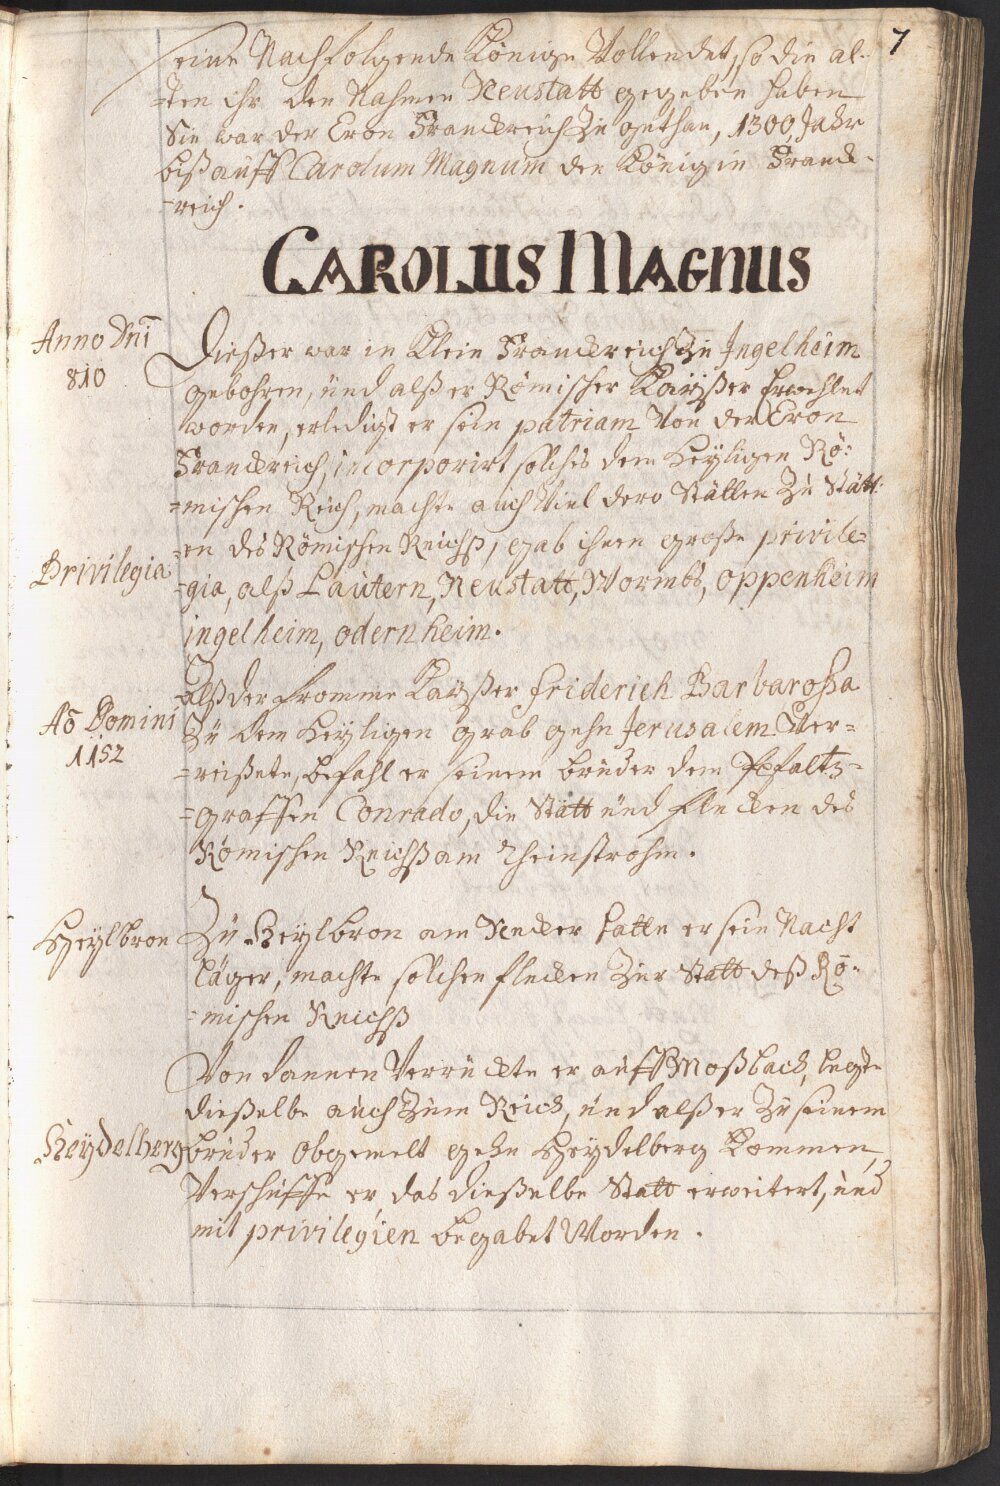 7
seine Nachfolgende Könige Vollendet, so die al-
-ten ihr den Nahmen Neustatt gegeben haben
Sie war der Cron Franckreich Zu gethan, 1300 Jahr
biß auff Carolum Magnum den König in Franck-
-reich.
CAROLUS MAGNUS
Anno Dni
810
Dießer war in Klein Franckreich Zu Ingelheim
gebohren, und alß er Römischer Kayßer Erwehlet
worden, erledigt er sein patriam Von der Cron
Franckreich, incorporirt solches dem Heyligen Rö:
=mischen Reich, machte auch Viel dero Stätten Zu Stätt:
=en des Römischen Reichß, gab ihnen große privile=
Privilegia
=gia, alß Lautern, Neustatt, Wormbs, oppenheim
ingelheim, odernheim.
alß der fromme Kayßer friderich Barbaroßa
Ao Domini
1152
Zu dem Heyligen grab gehn Jerusalem Ver=
=reißete, befahl er seinem bruder dem Pfaltz=
=graffen Conrado, die Stätt und flecken des
Römischen Reichß am Rheinstrohm.
Heylbron
Zu Heylbron am Necker hatte er sein Nacht
läger, machte solchen flecken Zur Statt deß Rö:
=mischen Reichß
Von dannen Verruckte er auff Moßbach, legte
dießelbe auch Zum Reich, und alß er Zu seinem
Heydelberg
bruder Obgemelt gehn Heydelberg Kommen,
Verschuffe er das dießelbe Statt erweitert, und
mit privilegien begabet Worden.